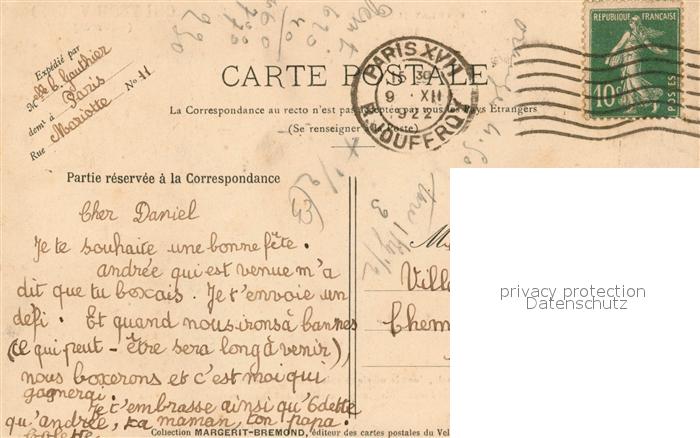 Expédié par
Mlle C. Gauthier
demt à Paris
Rue Mariotte No 11
CARTE POSTALE
La Correspondance au recto n'est pas acceptée par tous les Pays Étrangers
(Se renseigner à la Poste)
PARIS XVII
15 30
9 . XII
1922
R. JOUFFROY
RÉPUBLIQUE FRANÇAISE
10c
POSTES
Partie réservée à la Correspondance
Cher Daniel
Je te souhaite une bonne fête.
andrée qui est venue m'a
dit que tu boxais. Je t'envoie un
défi. Et quand nous irons à Cannes
(ce qui peut-être sera long à venir),
nous boxerons et c'est moi qui
gagnerai.
Je t'embrasse ainsi qu'Odette
qu'andrée, ta maman, ton papa.
M
Villa
Chem
privacy protection
Datenschutz
Collection MARGERIT-BREMOND, éditeur des cartes postales du Vel